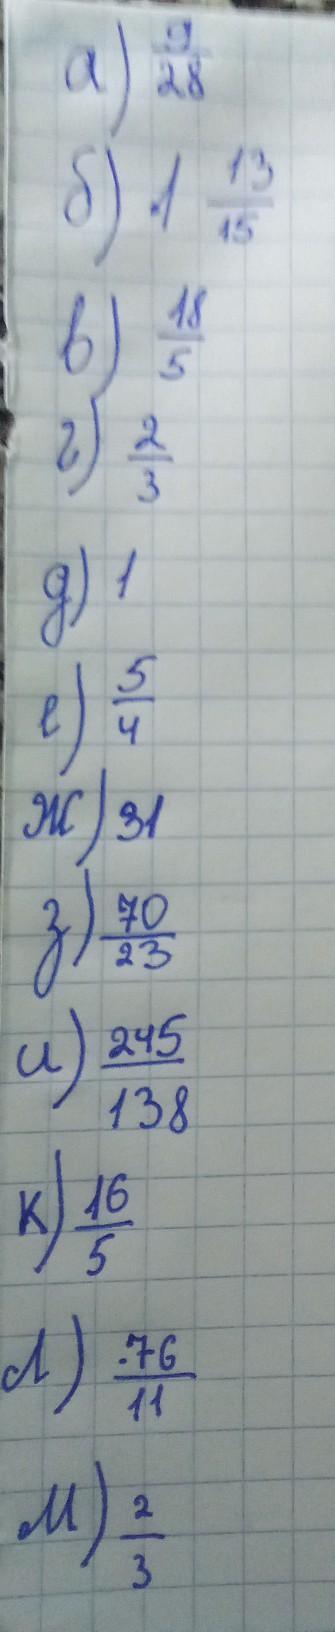 а) 9/28
б) 1 13/15
в) 18/5
г) 2/3
д) 1
е) 5/4
ж) 31
з) 70/23
и) 245/138
к) 16/5
л) 76/11
м) 2/3